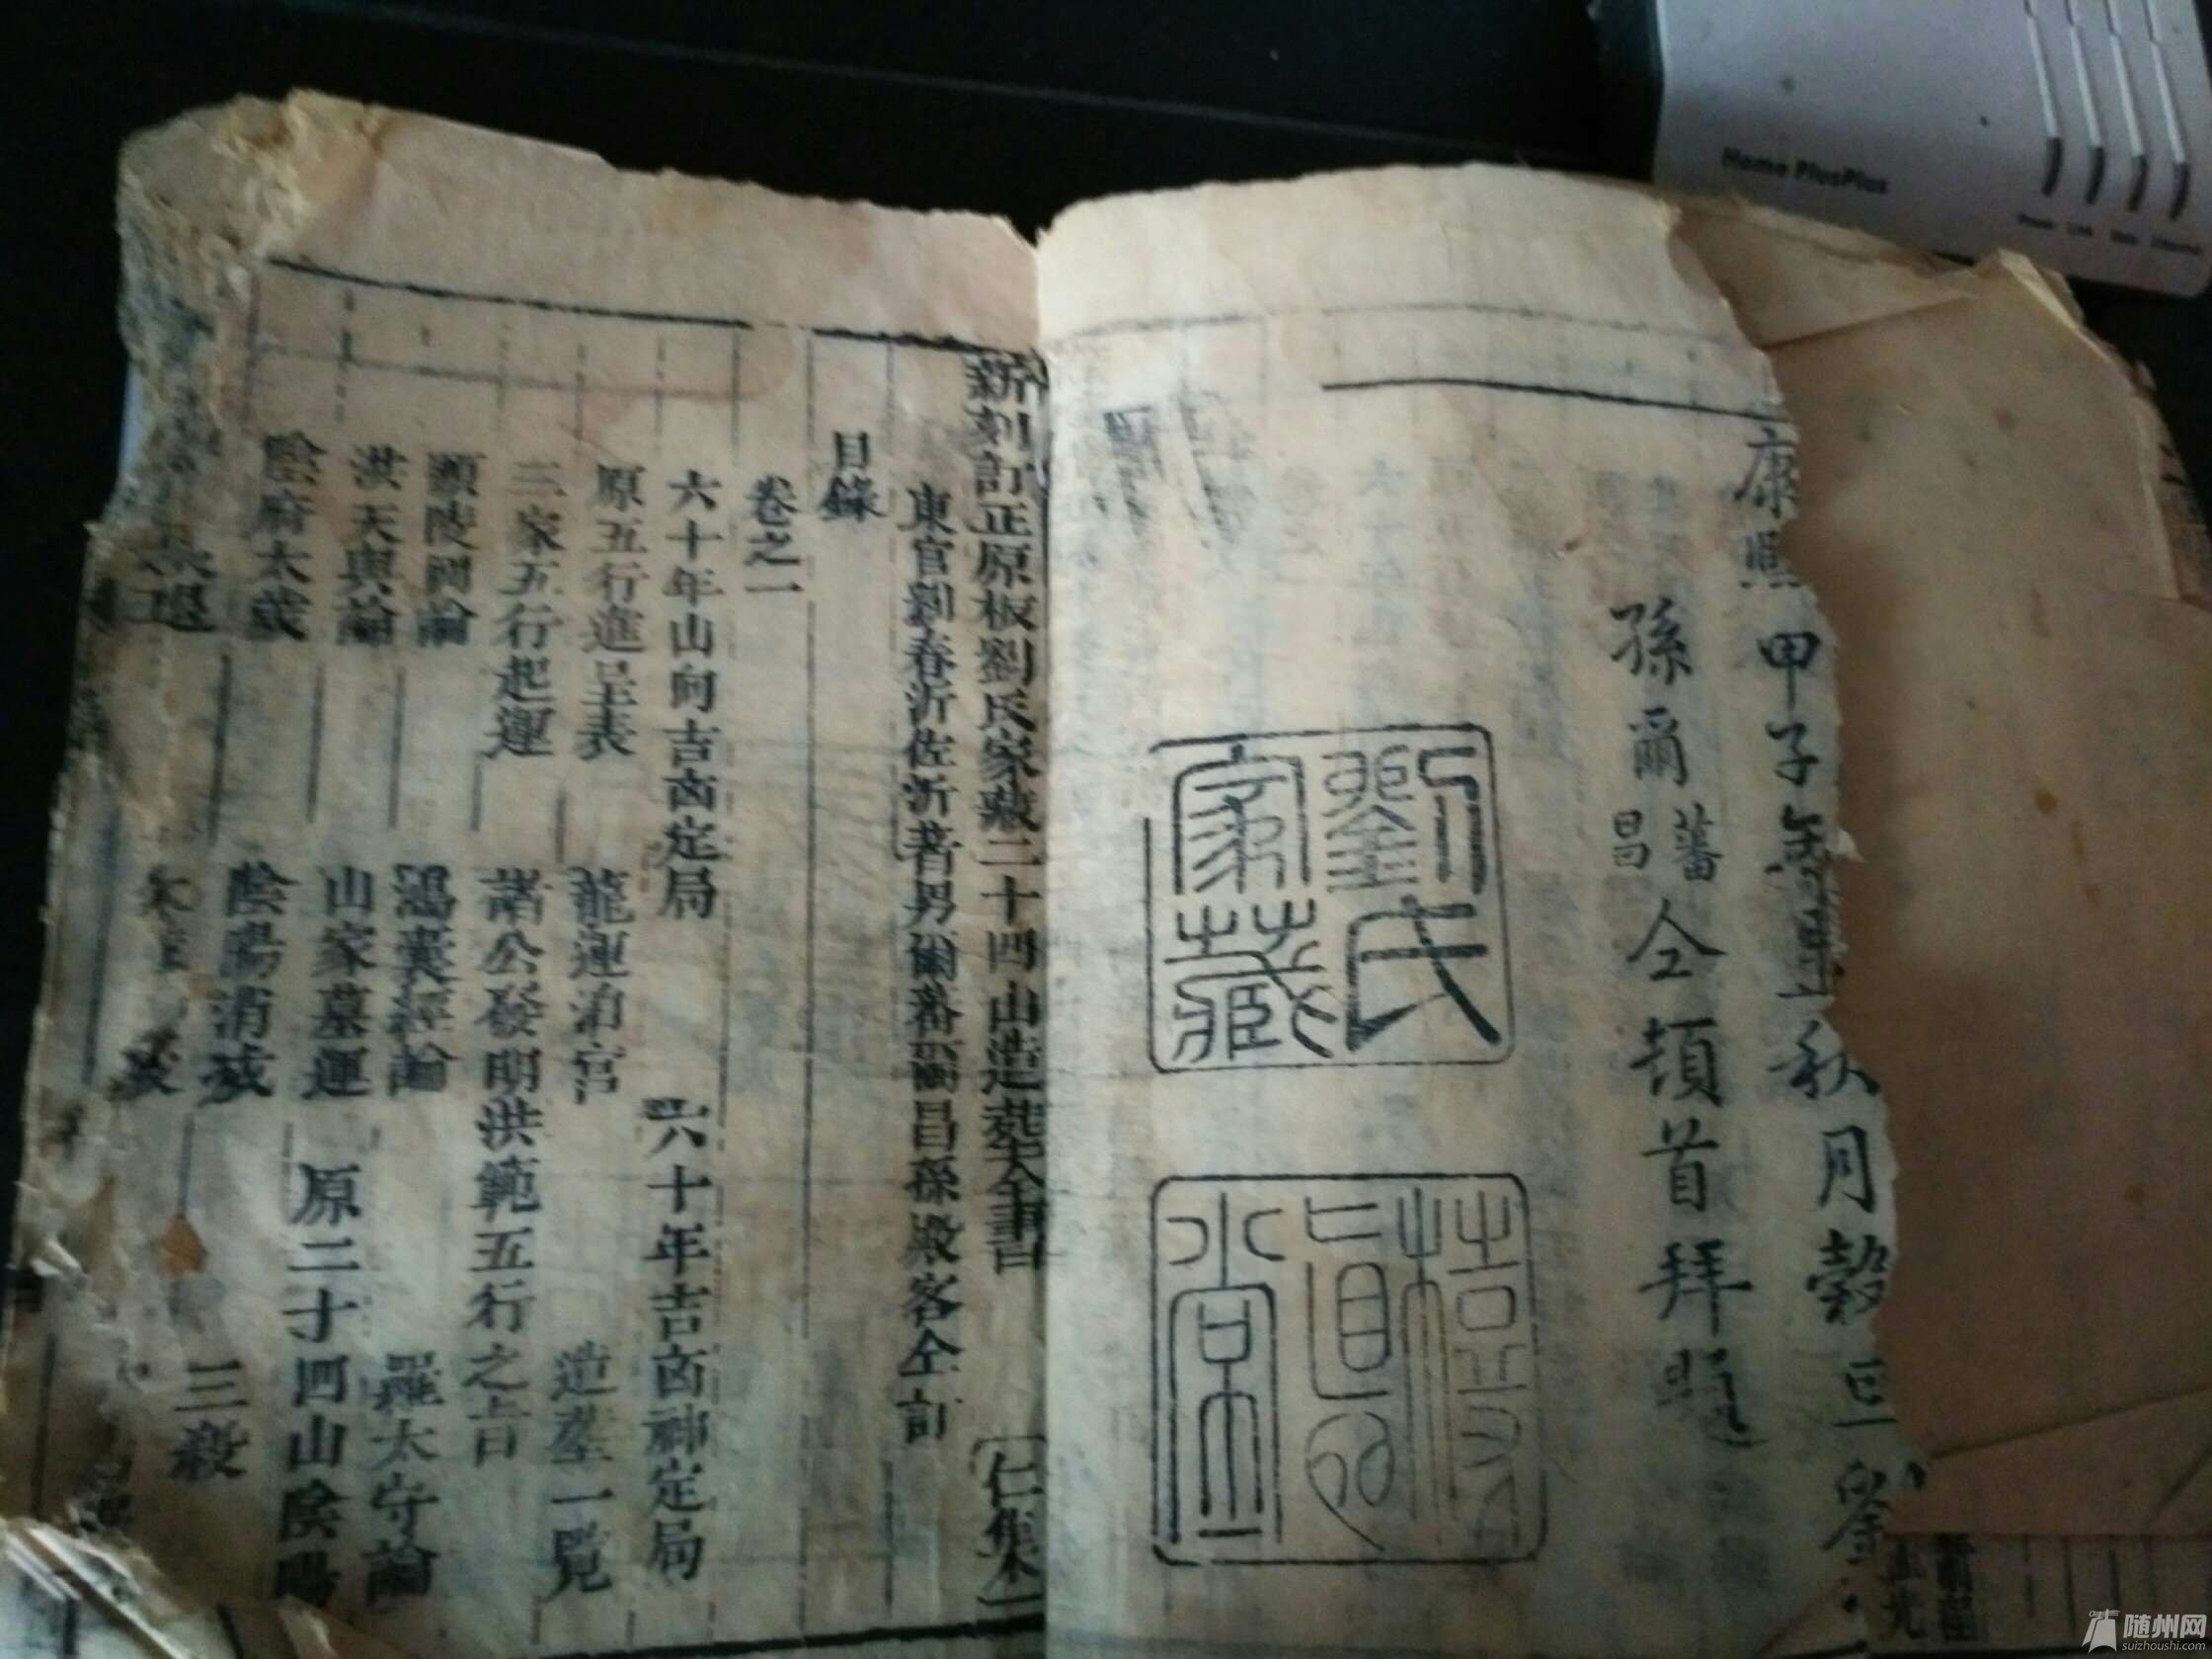 康熙甲子年
秋月穀旦
孫爾蕃昌仝頓首拜題
劉氏家藏
新刻訂正原板劉氏家藏二十四山造葬全書
仁集
東官劉春沂佐沂著男爾蕃爾昌孫殿客仝訂
目錄
卷之一
六十年山向吉凶定局
六十年吉凶神定局
原五行進呈表
龍運泊宮
造葬一覧
三家五行起運
諸公發明洪範五行之吉
顯陵阿論
鴻囊經論
羅太守論
洪天與論
山家墓運
原二十四山陰陽
陰府太歲
陰陽消滅
三殺
Home PlusPlus
随州网
suizhoushi.com